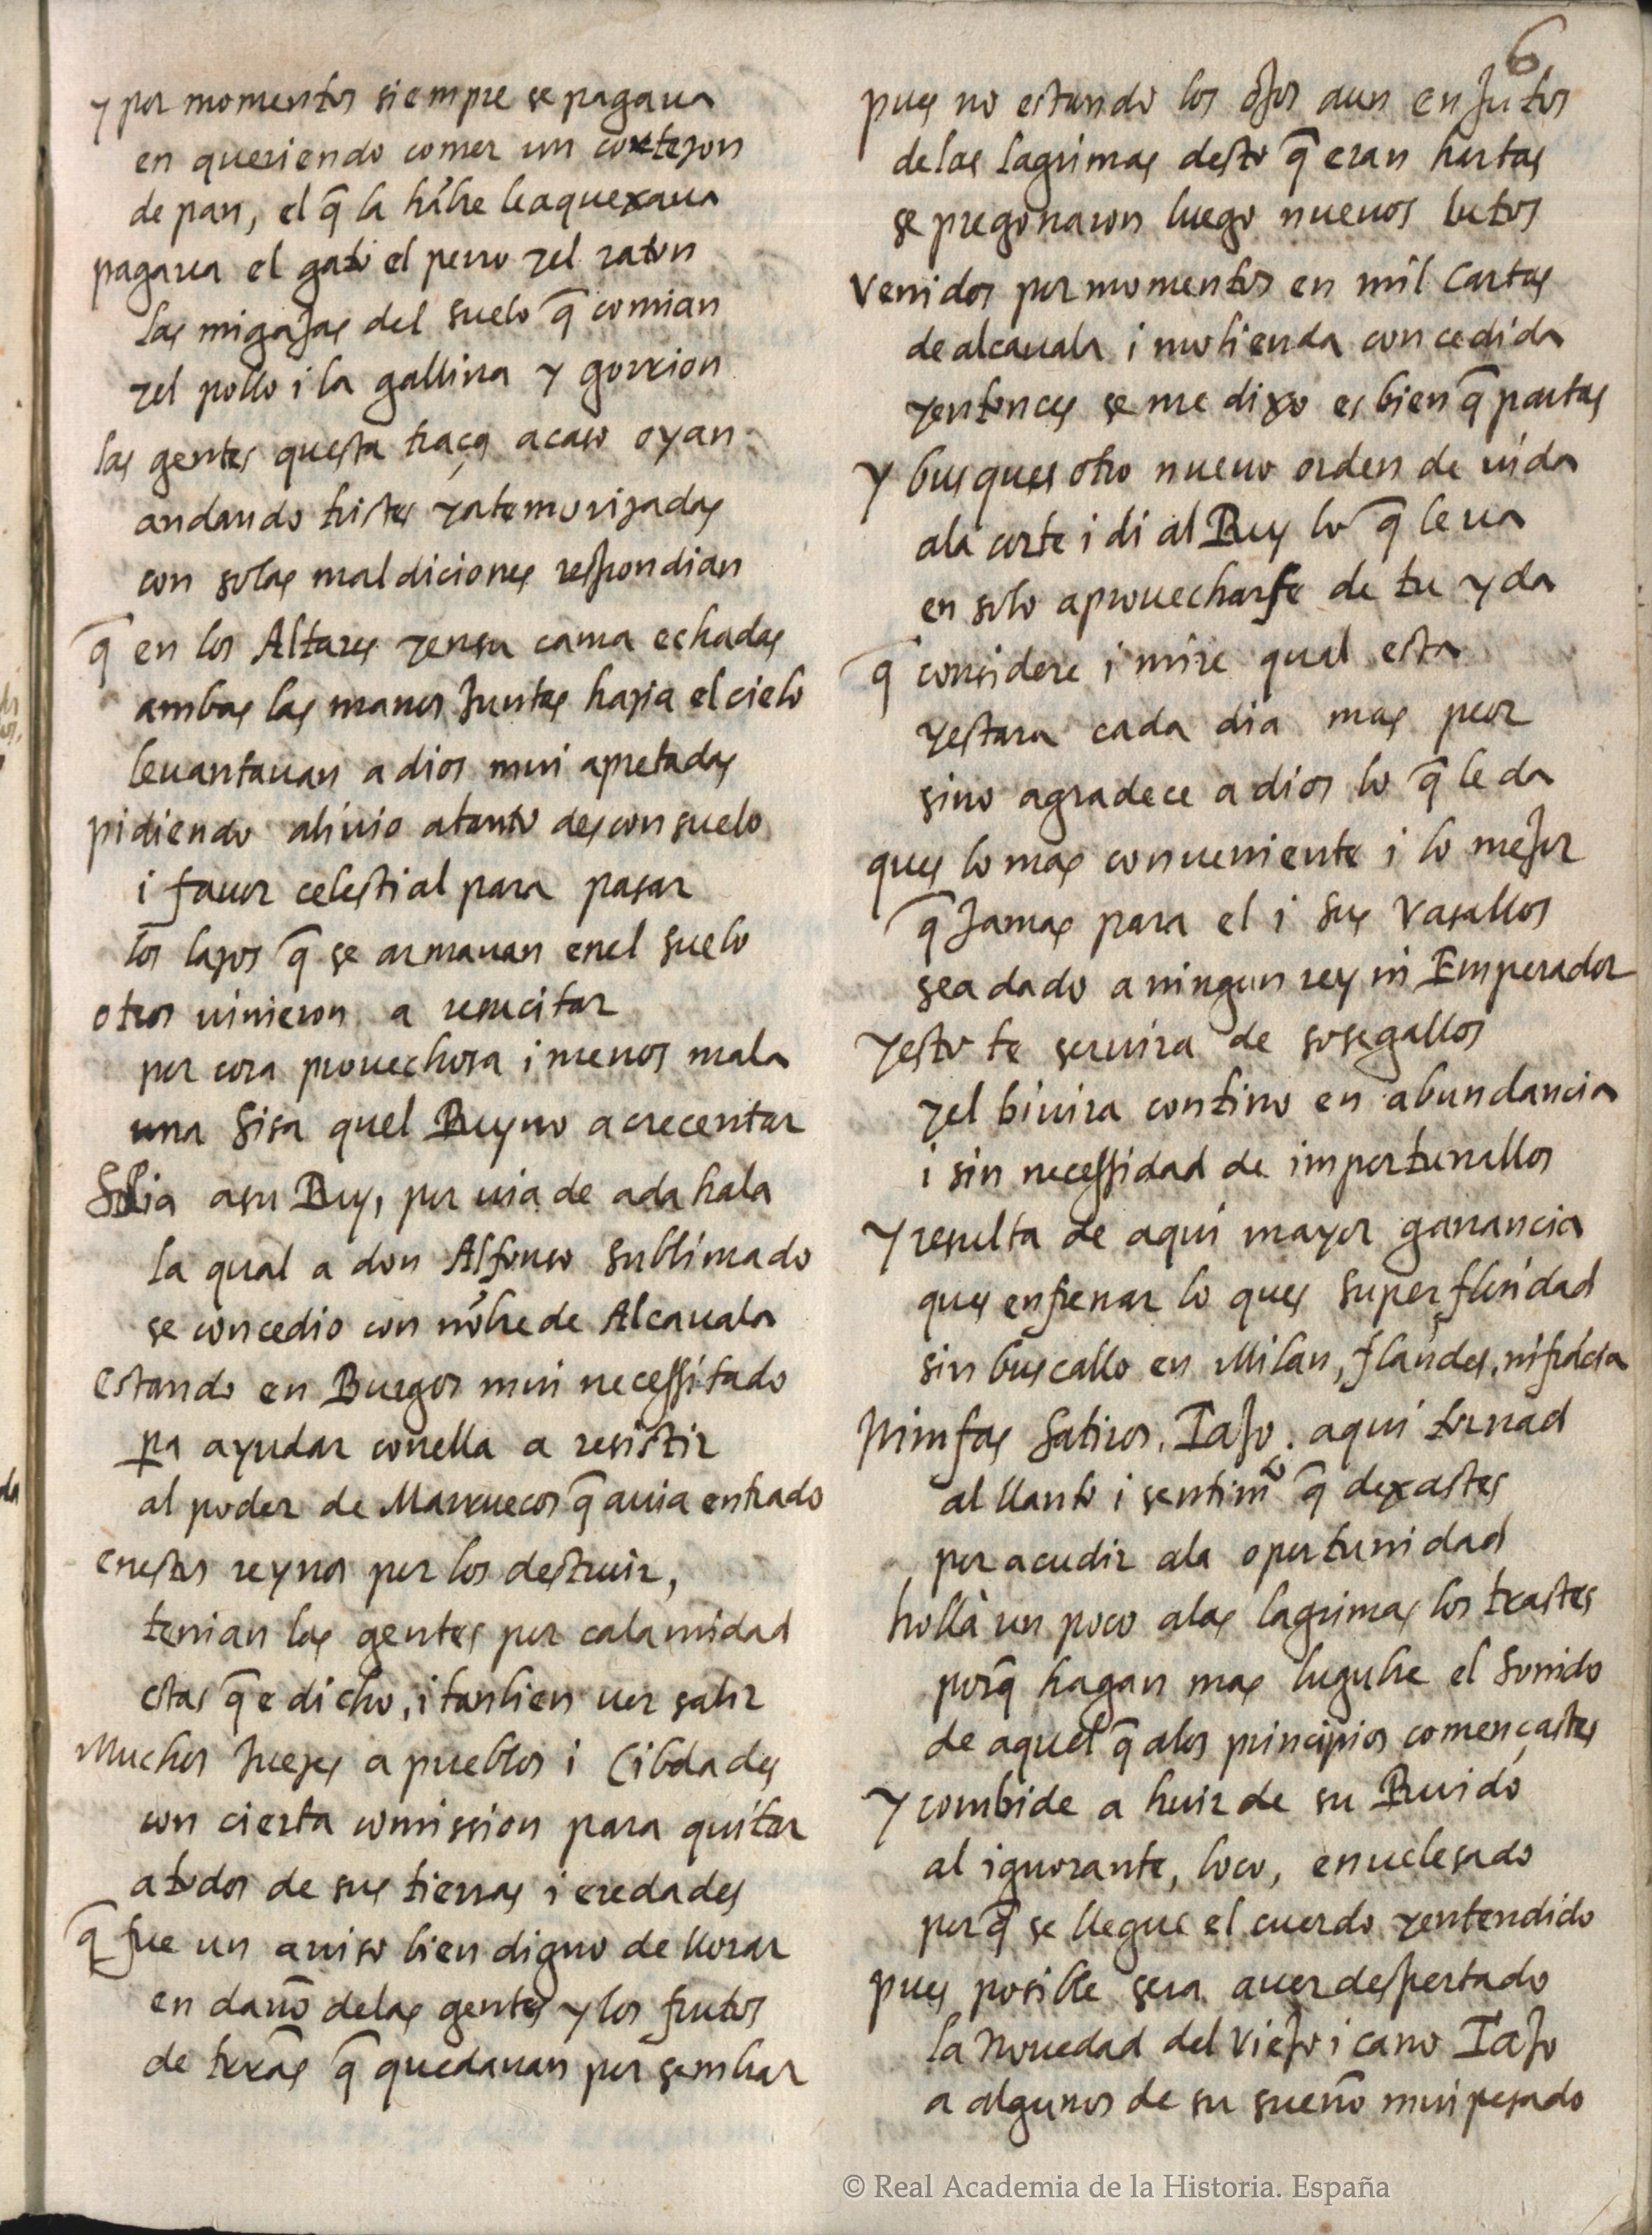 6
y por momentos siempre se pagaua
en queriendo comer un cortezon
de pan, el q̃ la hãbre le aquexaua
pagaua el gato el perro yel raton
las migajas del suelo q̃ comian
yel pollo i la gallina y gorrion
las gentes questa traça acaso oyan
andando tristes yatemorizadas
con solas maldiciones respondian
q̃ en los Altares yensu cama echadas
ambas las manos Juntas hazia el cielo
leuantauan a dios mui apretadas
pidiendo aliuio atanto desconsuelo
i fauor celestial para pasar
los lazos q̃ se armauan enel suelo
otros uinieron a resucitar
por cosa prouechosa i menos mala
una Sisa quel Reyno acrecentar
Solia asu Rey, por uia de adahala
la qual a don Alfonso sublimado
se concedio con nõbre de Alcauala
estando en Burgos mui necessitado
pa ayudar conella a resistir
al poder de Marruecos q̃ auia entrado
enestos reynos por los destruir,
tenian las gentes por calamidad
estas q̃ e dicho, i tanbien uer salir
Muchos Juezes a pueblos i Cibdades
con cierta comission para quitar
atodos de sus tierras i eredades
q̃ fue un auiso bien digno de llorar
en daño delas gentes y los frutos
de trẽas q̃ quedauan por sembrar
pues no estando los ojos aun enJutos
delas lagrimas desto q̃ eran hartas
se pregonaron luego nueuos lutos
Venidos por momentos en mil Cartas
de alcauala i molienda concedida
yentonces se me dixo es bien q̃ partas
y busques otro nueuo orden de uida
ala corte i di al Rey lo q̃ le ua
en solo aprouecharse de tu yda
q̃ considere i mire qual esta
yestara cada dia mas peor
sino agradece a dios lo q̃ le da
ques lo mas conueniente i lo mejor
q̃ Jamas para el i sus Vasallos
sea dado a ningun rey ni Emperador
yesto te seruira de sosegallos
yel biuira contino en abundancia
i sin necessidad de importunallos
y resulta de aqui mayor ganancia
ques enfrenar lo ques superfluidad
sin buscallo en Milan, flandes, ni frãcia
Nimfas Satiros, Tajo. aqui tornad
al llanto i sentimᵒ q̃ dexastes
por acudir ala oportunidad
hollã un poco alas lagrimas los trastes
porq̃ hagan mas lugubre el sonido
de aquel q̃ alos principios començastes
y combide a huir de su Ruido
al ignorante, loco, enuelesado
porq̃ se llegue el cuerdo yentendido
pues posible sera auer despertado
la Nouedad del Viejo i cano Tajo
a algunos de su sueño mui pesado
© Real Academia de la Historia. España